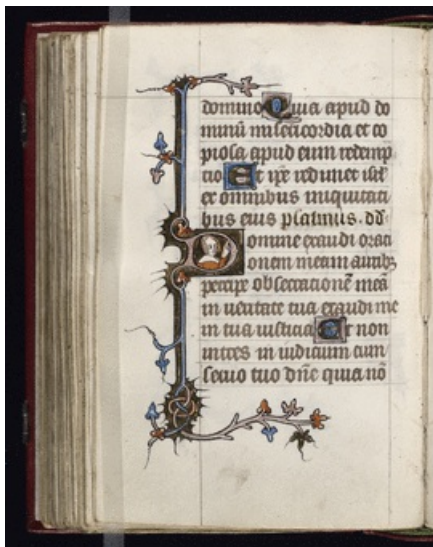 domino Quia apud do
minū misericordia et co
piosa apud eum redemp
tio Et ip̄e redimet isr̄l
ex omnibus iniquitati
bus eius psalmus. dd̄
Domine exaudi orati
onem meam auribꝫ
percipe obsecrationē meā
in veritate tua exaudi me
in tua iusticia Et non
intres in iudicium cum
servo tuo dn̄e quia nō